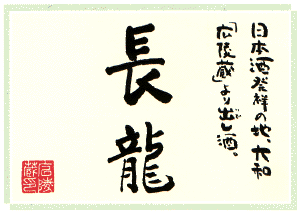 日本酒発祥の地、大和
「広陵蔵」より出し酒、
長龍
広陵蔵印